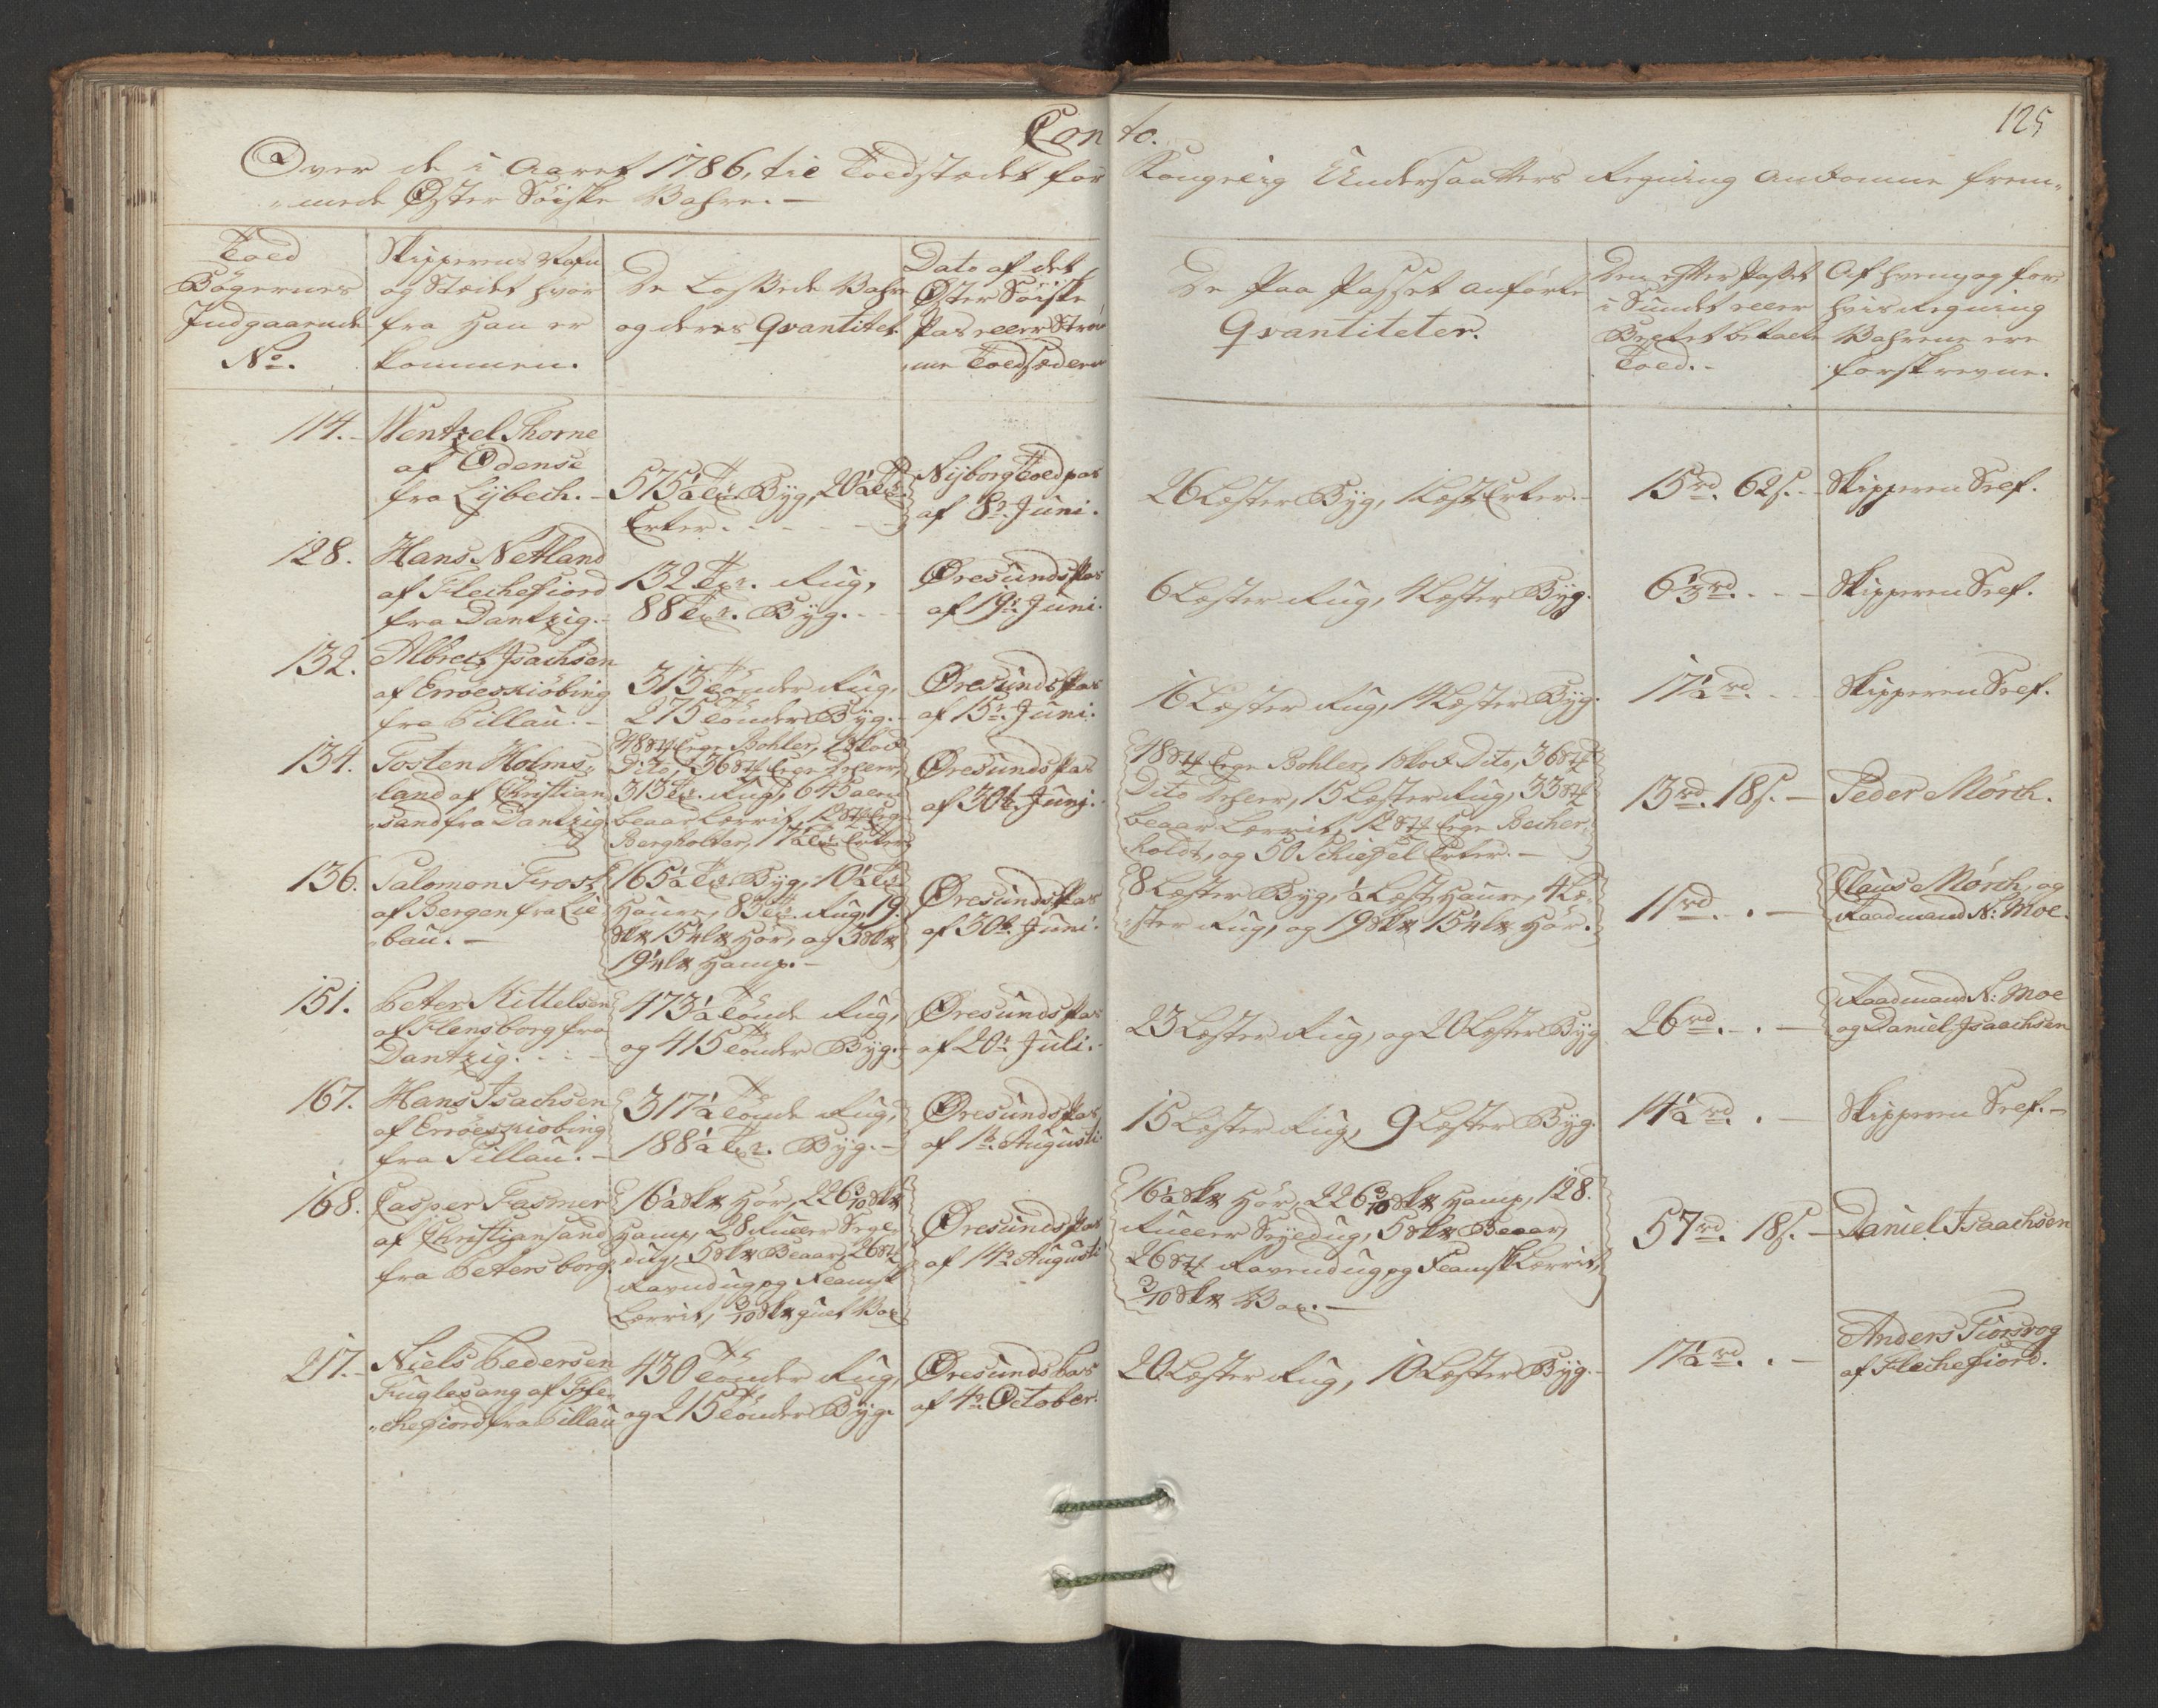 Conto.
125
Over de i Aaret 1786, til Toldstædet for Kongelig Undersaatters Regning ankomne frem„
„mede Øster Söiske Vahre.-
Told
Bögernes
Indgaaende
No.
Skipperens Nafn
og Stædet hvor
fra han er
kommen.
De Lossede Vahre
og deres Qvantitet.
Dato af det
Øster Söiske
Pas eller Strøm„
„me Toldsedler
De Paa Passet anførte
Qvantiteter.
Den efter Passet
i Sundet eller
Beltet betalte
Told.-
Af hvem og for
hvis Regning
Vahrene ere
forskrevne.
114.- Wentzel Thorne
af Odense
fra Lybech.-
575½ Tr. Byg, 20½ Tr.
Erter.
Nyborg Toldpas
af 8de Juni.
26 Læster Byg, 1 Læst Erter.-
15 rd. 62 s.-
Skipperen Self.
128. Hans Netland
af Flechefiord
fra Dantzig.-
132 Tr. Rug,
88 Tr. Byg.
Øresunds Pas
af 19de Juni.
6 Læster Rug, 4 Læster Byg.
6⅓ rd.
Skipperen Self.
132. Albret Isachsen
af Erroeskiöbing
fra Pillau.-
313 Tönder Rug,
275 Tönder Byg.-
Øresunds Pas
af 15de Juni.
16 Læster Rug, 14 Læster Byg.
17½ rd.
Skipperen Self.
134. Tosten Holms„
„land af Christian„
„sand fra Dantzig
48 st Ege Bohler, 1 Skok
Dito, 36 st Ege
313 Tr. Rug, 645 alen
Lærrit, 12 st Ege
Bergholter, 17½ Tr. Erter
Øresunds Pas
af 30te Junj.
48 st Ege Bohler, 1 Skok Dito, 36 st
Dito, 15 Læster Rug, 33 st
Lærrit, 12 st Ege Becher„
„holdt, og 50 Schieffel Erter.-
13 rd. 18 s.-
Peder Mörch.
136. Salomon Frost
af Bergen fra Lie„
„bau.-
165½ Tr. Byg, 10½ Tr.
Haure, 83 Tr. Rug, 19
Sk℔ 15¼ L℔ Hör, og 3 Sk℔
19¼ L℔ Hamp.-
Øresunds Pas
af 30te Juni.
8 Læster Byg, ½ Læst Haure, 4 Læ„
„ster Rug, og 19 Sk℔ 15¼ L℔ Hör.
11 rd. .-
Claus Mörch, og
Raadmand N: Moe.
151. Peter Kittelsen
af Flensborg fra
Dantzig.
473½ Tönde Rug,
og 415 Tönder Byg.-
Øresunds Pas
af 20de Juli.-
23 Læster Rug, og 20 Læster Byg
26 rd. .-
Raadmand N: Moe
og Daniel Isaachsen
167. Hans Isachsen
af Erröeskiobing
fra Pillau.-
317½ Tönde Rug,
188½ Tr. Byg.-
Øresunds Pas
af 1te Augusti.
15 Læster Rug, 9 Læster Byg.
14½ rd. .-
Skipperen Self.-
168. Casper Fasmer
af Christiansand
fra Petersborg
16½ Sk℔ Hör, 226 3/10 Sk℔
Hamp, 28 Ruller Segl„
dug, 5 Sk℔ Blaar, 26 st
Ravndug og Flamsk
Lærrit, 3/10 Sk℔ guel Vox
Øresunds Pas
af 14de Augusti
16½ Sk℔ Hör, 226 3/10 Sk℔ Hamp, 128.
Ruller Seyldug, 5 Sk℔ Blaar,
26 st Ravendug og Flamsk Lærrit,
3/10 Sk℔ Vox.-
57 rd. 18 s.-
Daniel Isaachsen
217.- Niels Pedersen
Fuglesang af Fle„
„chefiord fra Pillau
430 Tönder Rug,
og 215 Tönder Byg.
Øresunds Pas
af 4de October.
20 Læster Rug, 10 Læster Byg.-
17½ rd. .-
Anders
af Flechefiord.